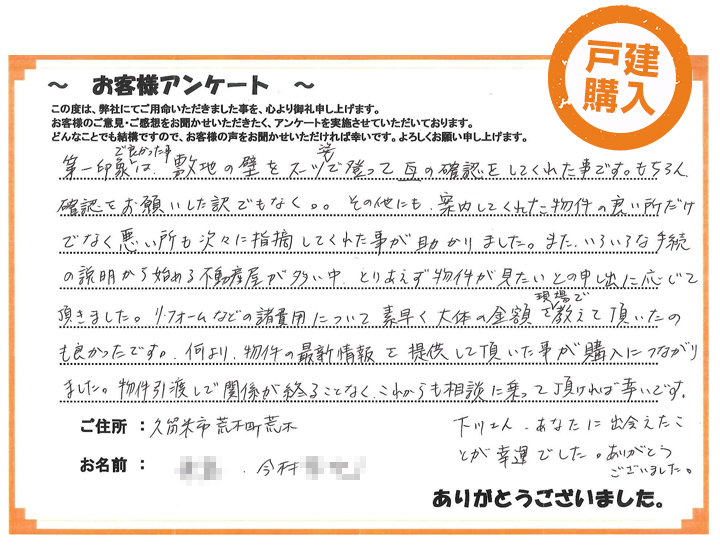 戸建
購入
～ お客様アンケート ～
この度は、弊社にてご用命いただきました事を、心より御礼申し上げます。
お客様のご意見・ご感想をお聞かせいただきたく、アンケートを実施させていただいております。
どんなことでも結構ですので、お客様の声をお聞かせいただければ幸いです。よろしくお願い申し上げます。
で良かった事 姿
第一印象は、敷地の壁をスーツで登って瓦の確認をしてくれた事です。もちろん
確認をお願いした訳でもなく。。その他にも、案内してくれた物件の良い所だけ
でなく悪い所も次々に指摘してくれた事が助かりました。また、いろいろな手続
の説明から始める不動産屋が多い中、とりあえず物件が見たいとの申し出に応じて
現場で
頂きました。リフォームなどの諸費用について素早く大体の金額を教えて頂いたの
も良かったです。何より、物件の最新情報を提供して頂いた事が購入につながり
ました。物件引渡しで関係が終ることなく、これからも相談に乗って頂ければ幸いです。
ご住所 ： 久留米市荒木町荒木
お名前 ： 今村
下川さん、あなたに出会えたこ
とが幸運でした。ありがとう
ございました。
ありがとうございました。